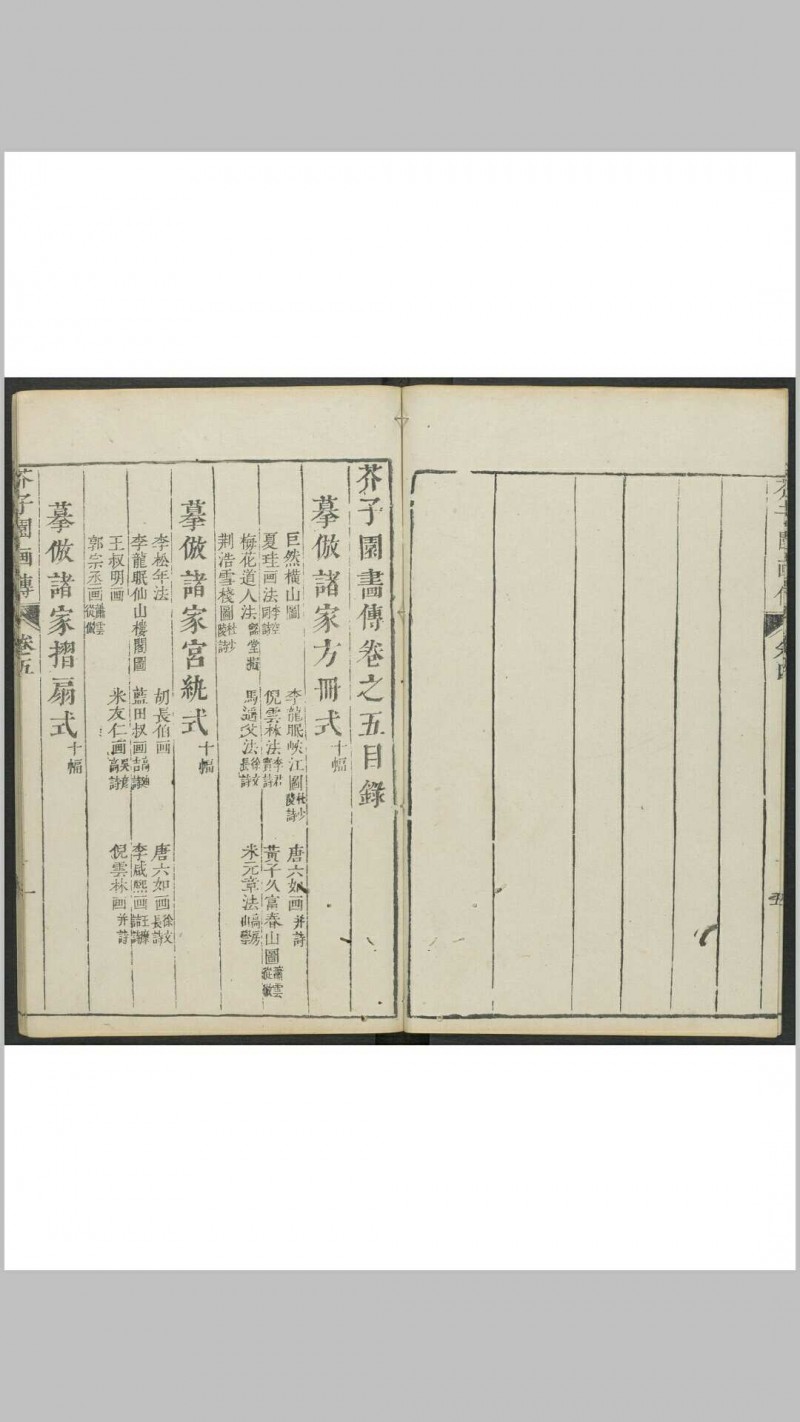 芥子園畵傳卷之五目錄
摹倣諸家方冊式十幅
巨然橫山圖 李龍眠峽江圖杜少陵詩 唐六如画并詩
夏珪画法李空同詩 倪雲林法李君實詩 黃子久富春山圖蕭雲從倣
梅花道人法 馬遠父法徐文長詩 米元章法高房山學
荆浩雪棧圖杜少陵詩
摹倣諸家宮紈式十幅
李松年法 胡長伯画 唐六如画徐文長詩
李龍眠仙山樓閣圖 藍田叔画 李咸熙画
王叔明画 米友仁画 倪雲林画并詩
郭宗丞画蕭雲從倣
摹倣諸家摺扇式十幅
芥子園画傳
卷五
一